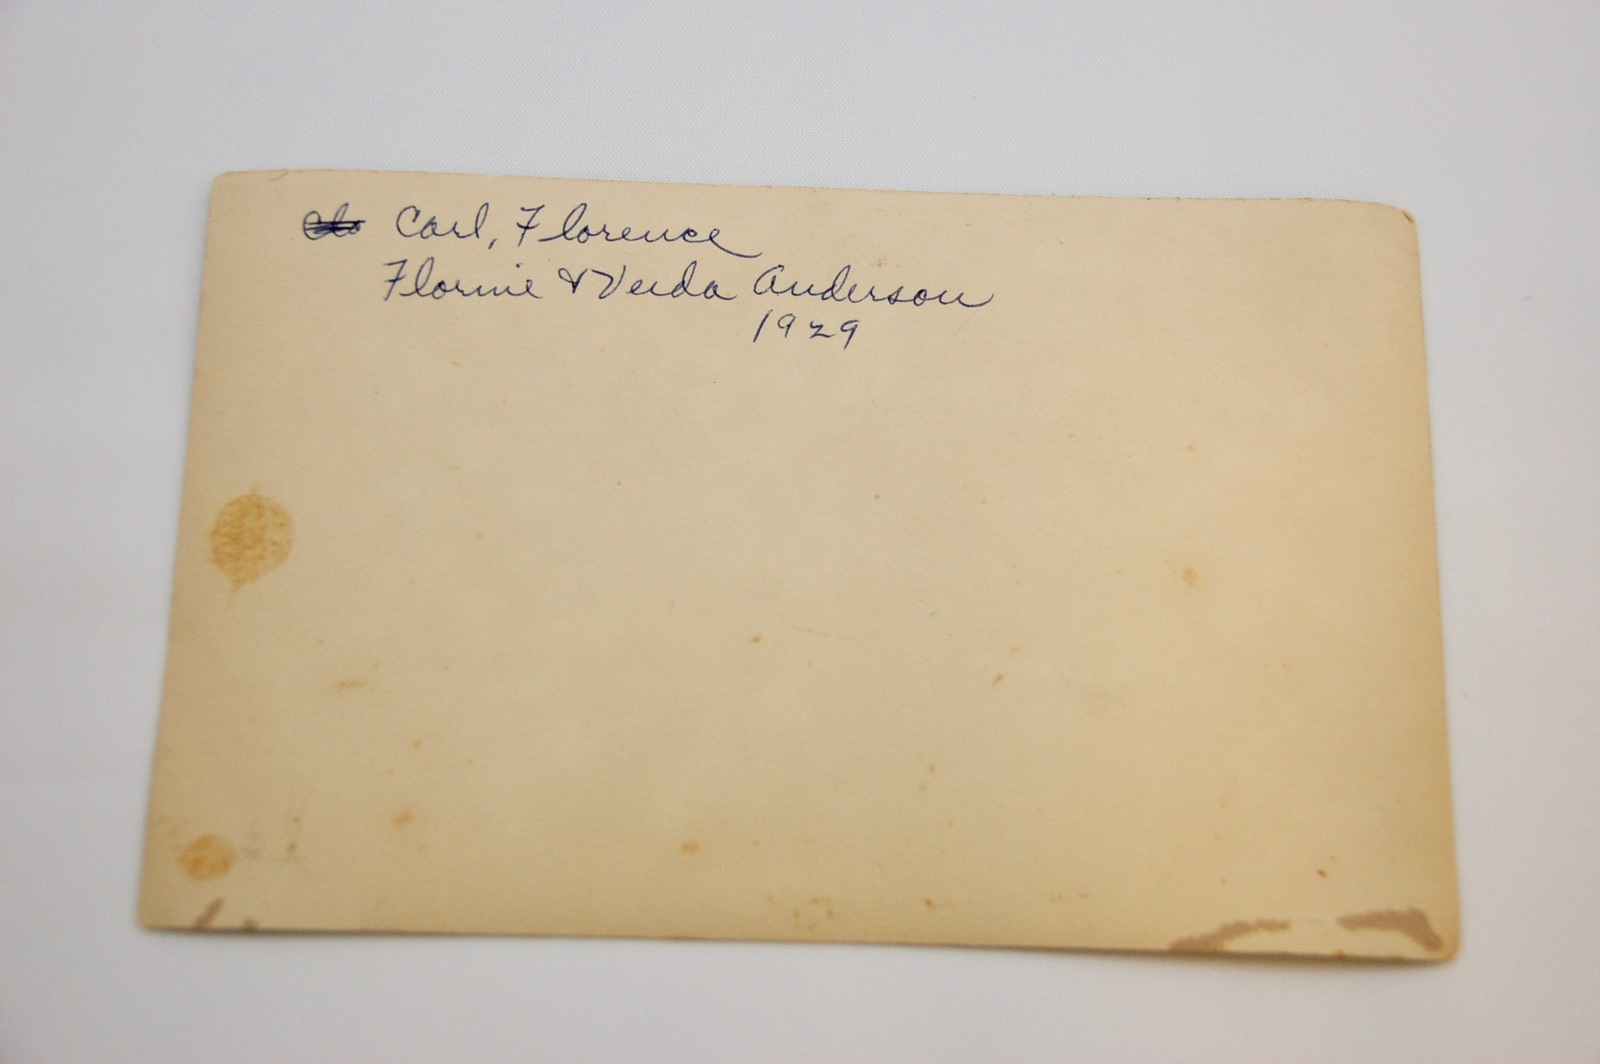 Carl, Florence
Florine & Verda Anderson
1929